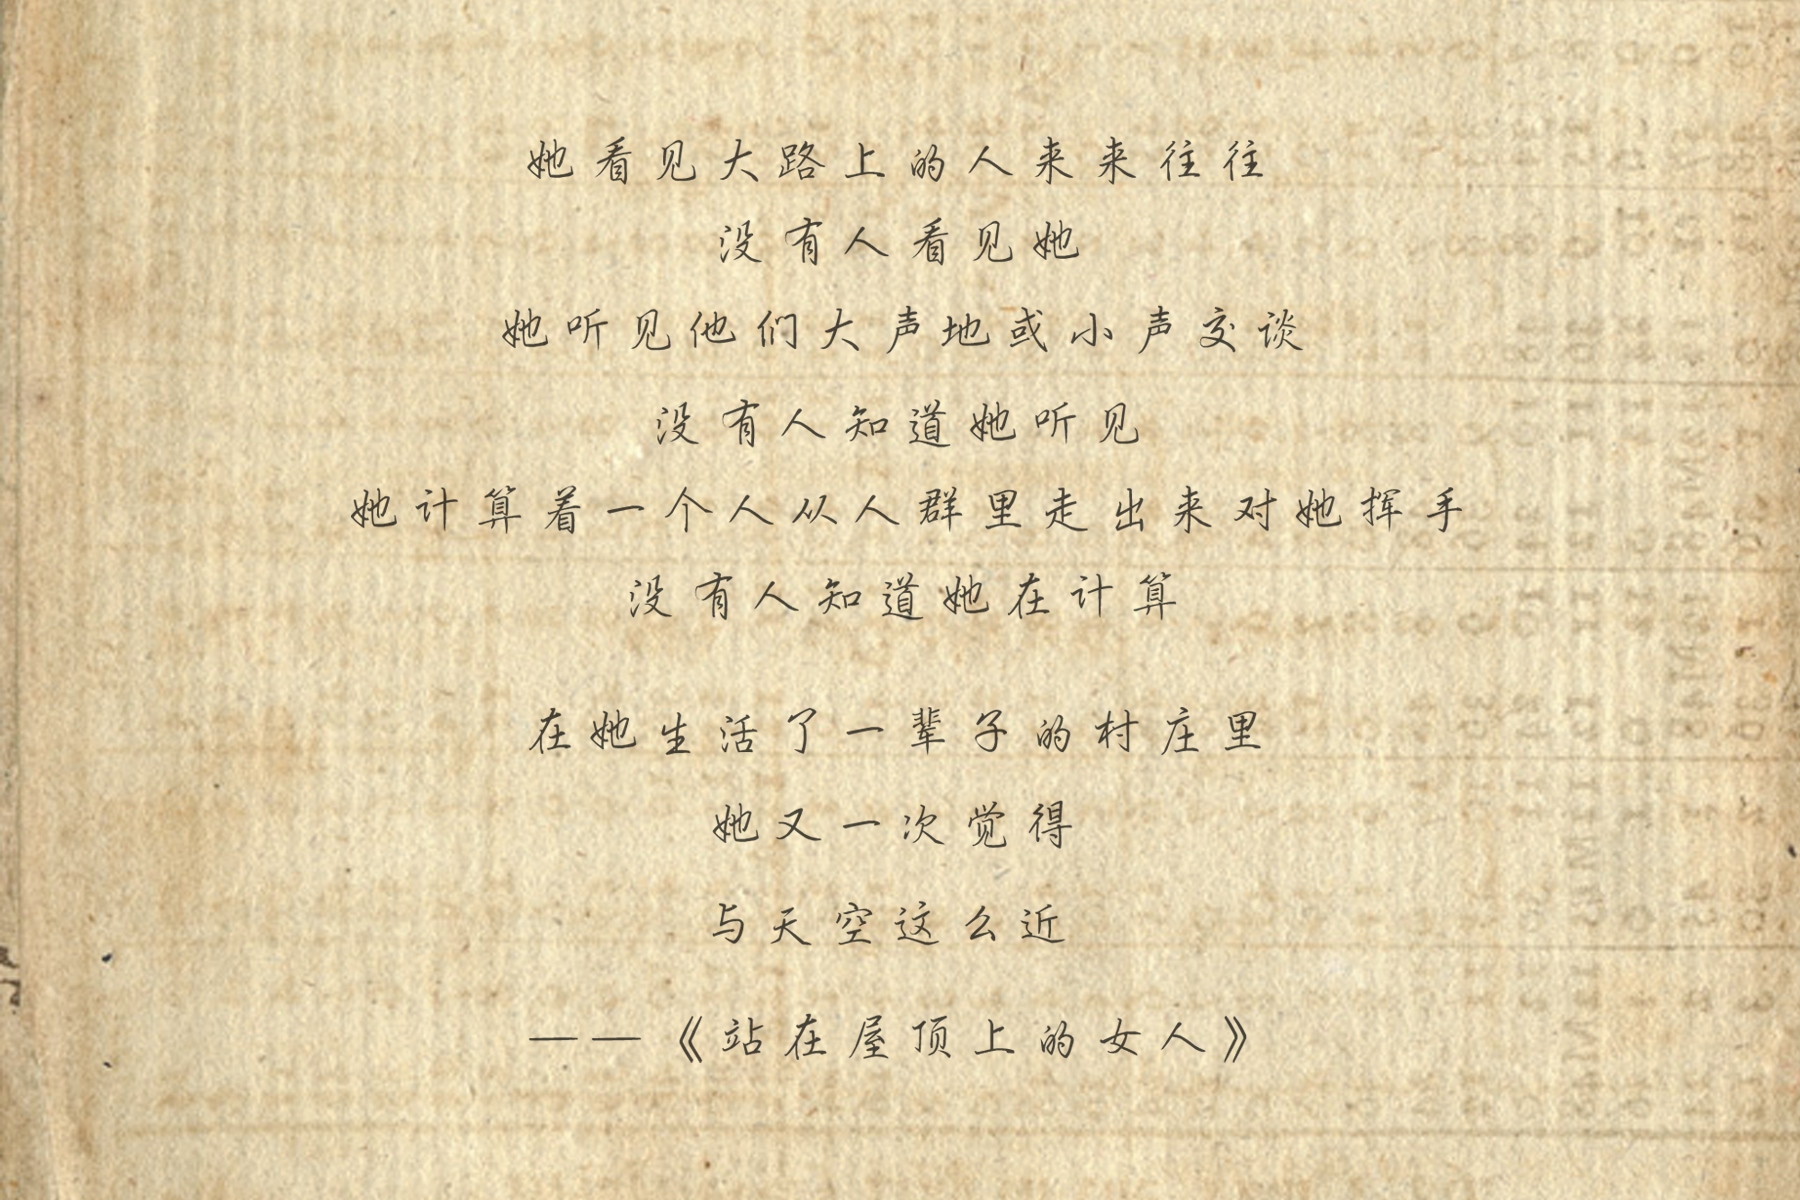 她看见大路上的人来来往往
没有人看见她
她听见他们大声地或小声交谈
没有人知道她听见
她计算着一个人从人群里走出来对她挥手
没有人知道她在计算
在她生活了一辈子的村庄里
她又一次觉得
与天空这么近
——《站在屋顶上的女人》